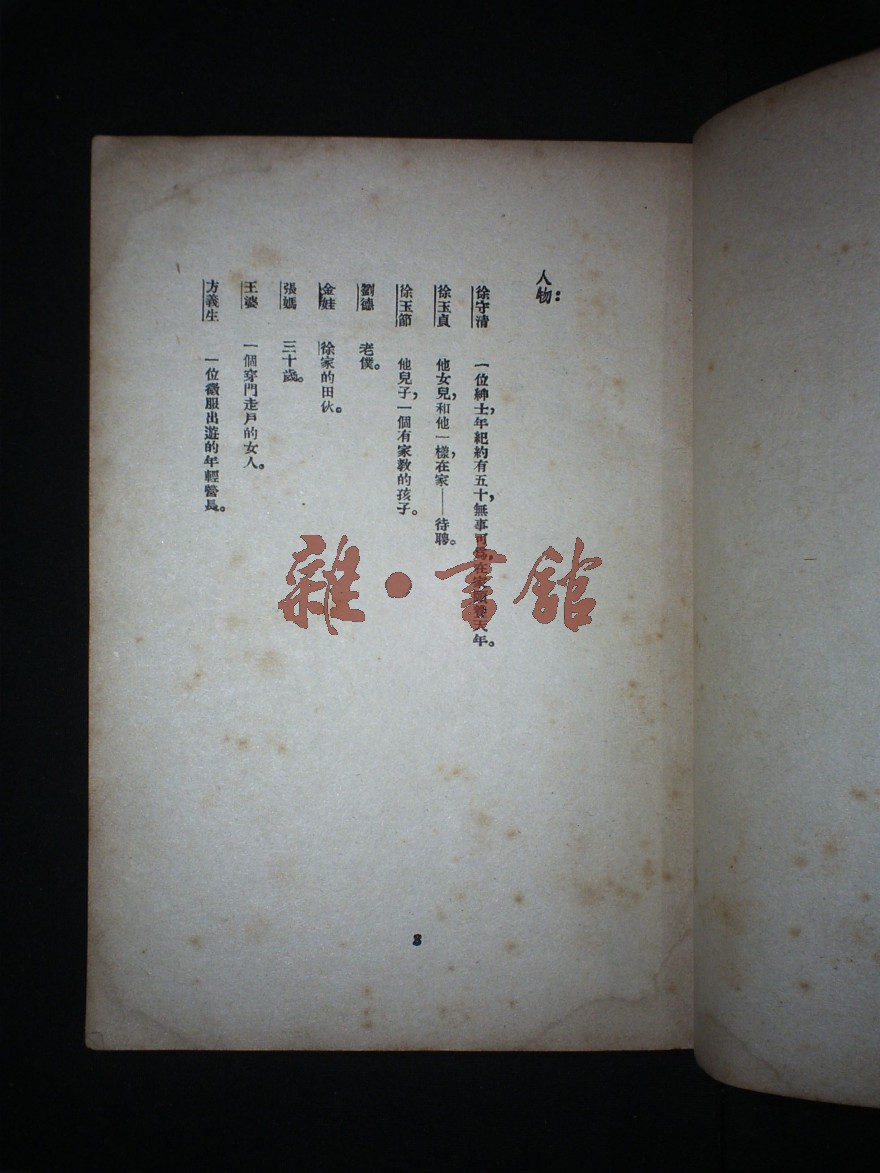 人物：
徐守清　一位紳士，年紀約有五十，無事可爲，在家頤養天年。
徐玉貞　他女兒，和他一樣，在家——待聘。
徐玉節　他兒子，一個有家教的孩子。
劉德　老僕。
金娃　徐家的田伙。
張媽　三十歲。
王婆　一個穿門走戶的女人。
方義生　一位微服出遊的年輕營長。
3
雜·書館